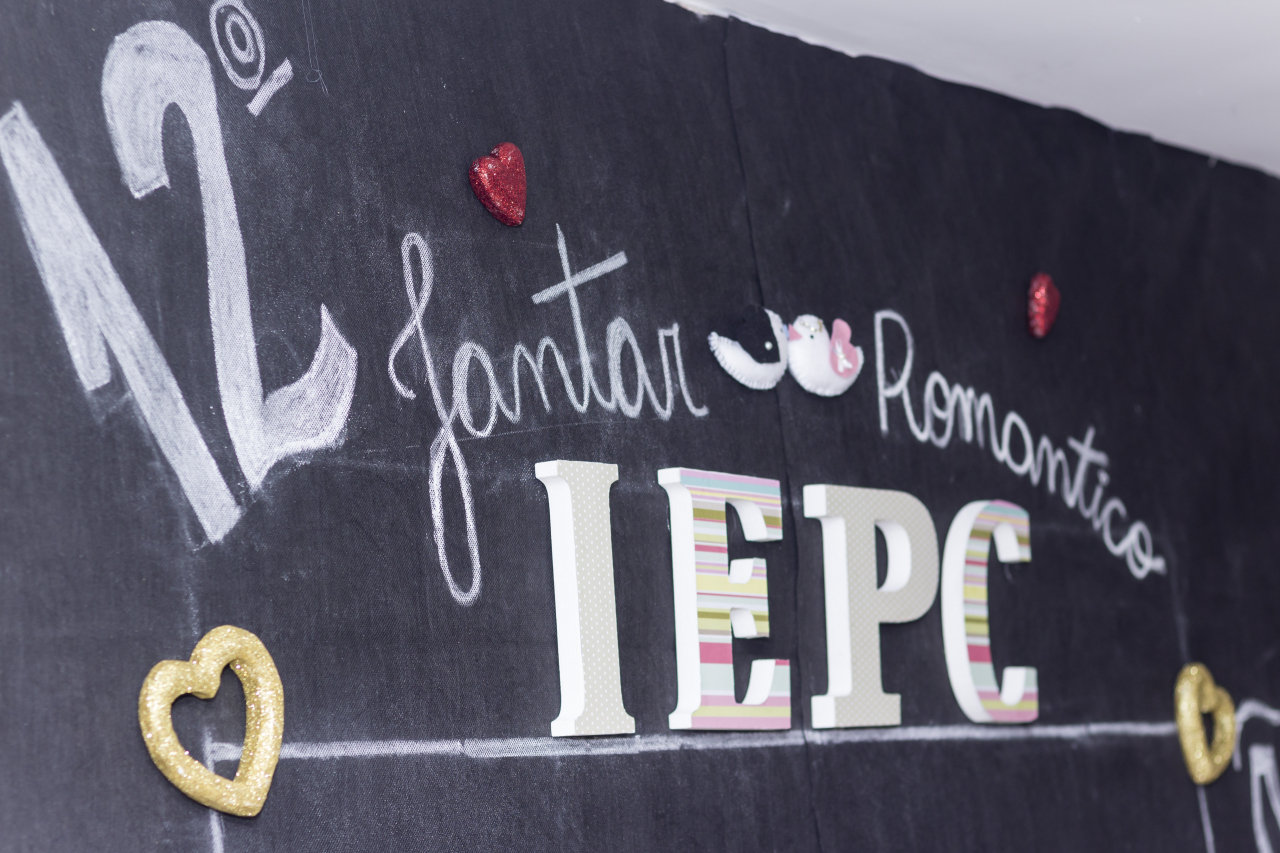 12º
Jantar Romantico
IEPC